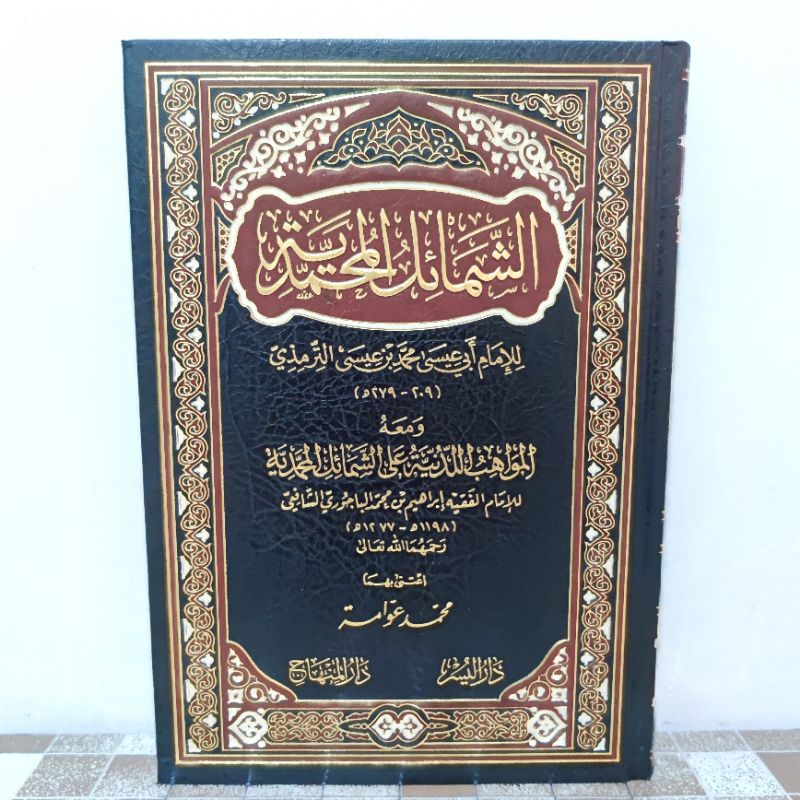 الشَّمَائِلُ المُحَمَّدِيَّة
لِلإِمَامِ أَبِي عِيسَى مُحَمَّد بْنِ عِيسَى التِّرمِذِيّ
(٢٠٩ - ٢٧٩ ه)
وَمَعَهُ
المَوَاهِبُ اللَّدُنِّيَّة عَلَى الشَّمَائِل المُحَمَّدِيَّة
لِلإِمَامِ الفَقِيه إبراهيم بْنِ مُحَمَّد البَاجُورِيّ الشَّافِعِيّ
(١١٩٨ه - ١٢٧٧ه)
رَحِمَهُمَا اللهُ تَعَالَى
اعْتَنَى بِهِمَا
مُحَمَّد عَوَّامَة
دَارُ اليُسْر دَارُ المِنْهَاج